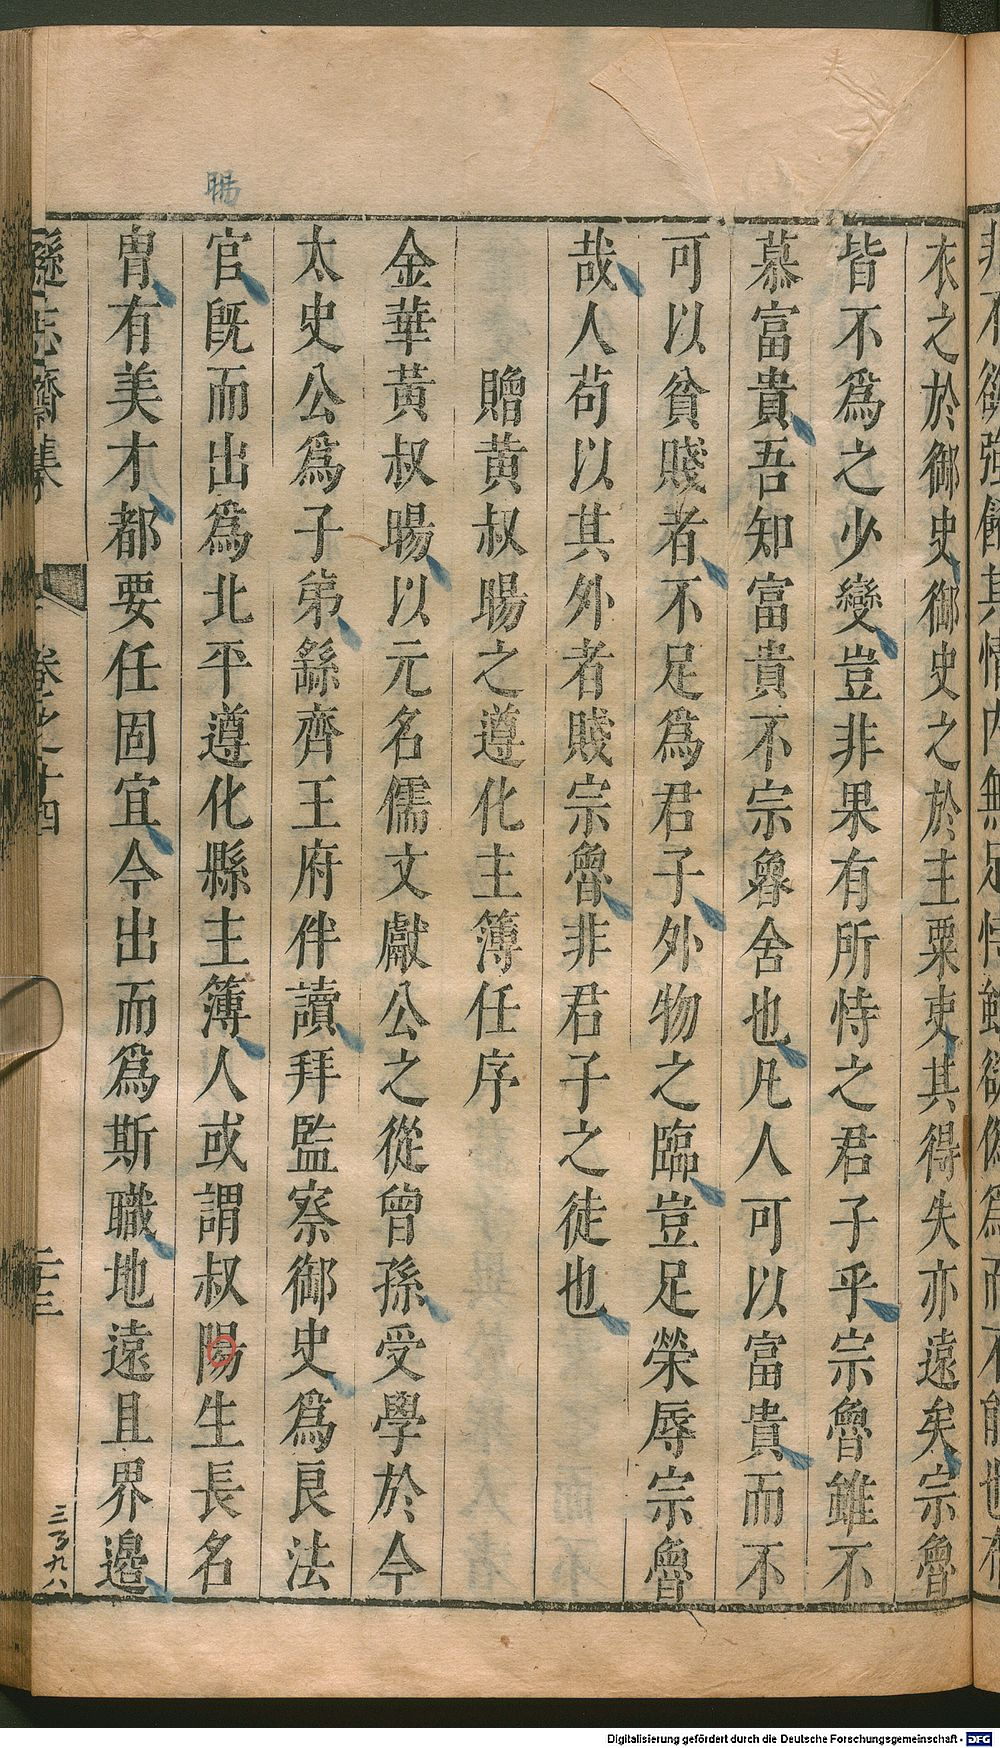 衣之於御史御史之於主粟吏其得失亦遠矣宗魯
皆不為之少變豈非果有所恃之君子乎宗魯雖不
慕富貴吾知富貴不宗魯舍也凡人可以富貴而不
可以貧賤者不足為君子外物之臨豈足榮辱宗魯
哉人苟以其外者賤宗魯非君子之徒也
贈黃叔暘之遵化主簿任序
金華黃叔暘以元名儒文獻公之從曾孫受學於今
太史公爲子弟繇齊王府伴讀拜監察御史爲良法
官旣而出爲北平遵化縣主簿人或謂叔陽生長名
冑有美才都要任固宜今出而爲斯職地遠且界邊
暘
遜志齋集
卷之十四
二十三
三百九八
Digitalisierung gefördert durch die Deutsche Forschungsgemeinschaft - DFG